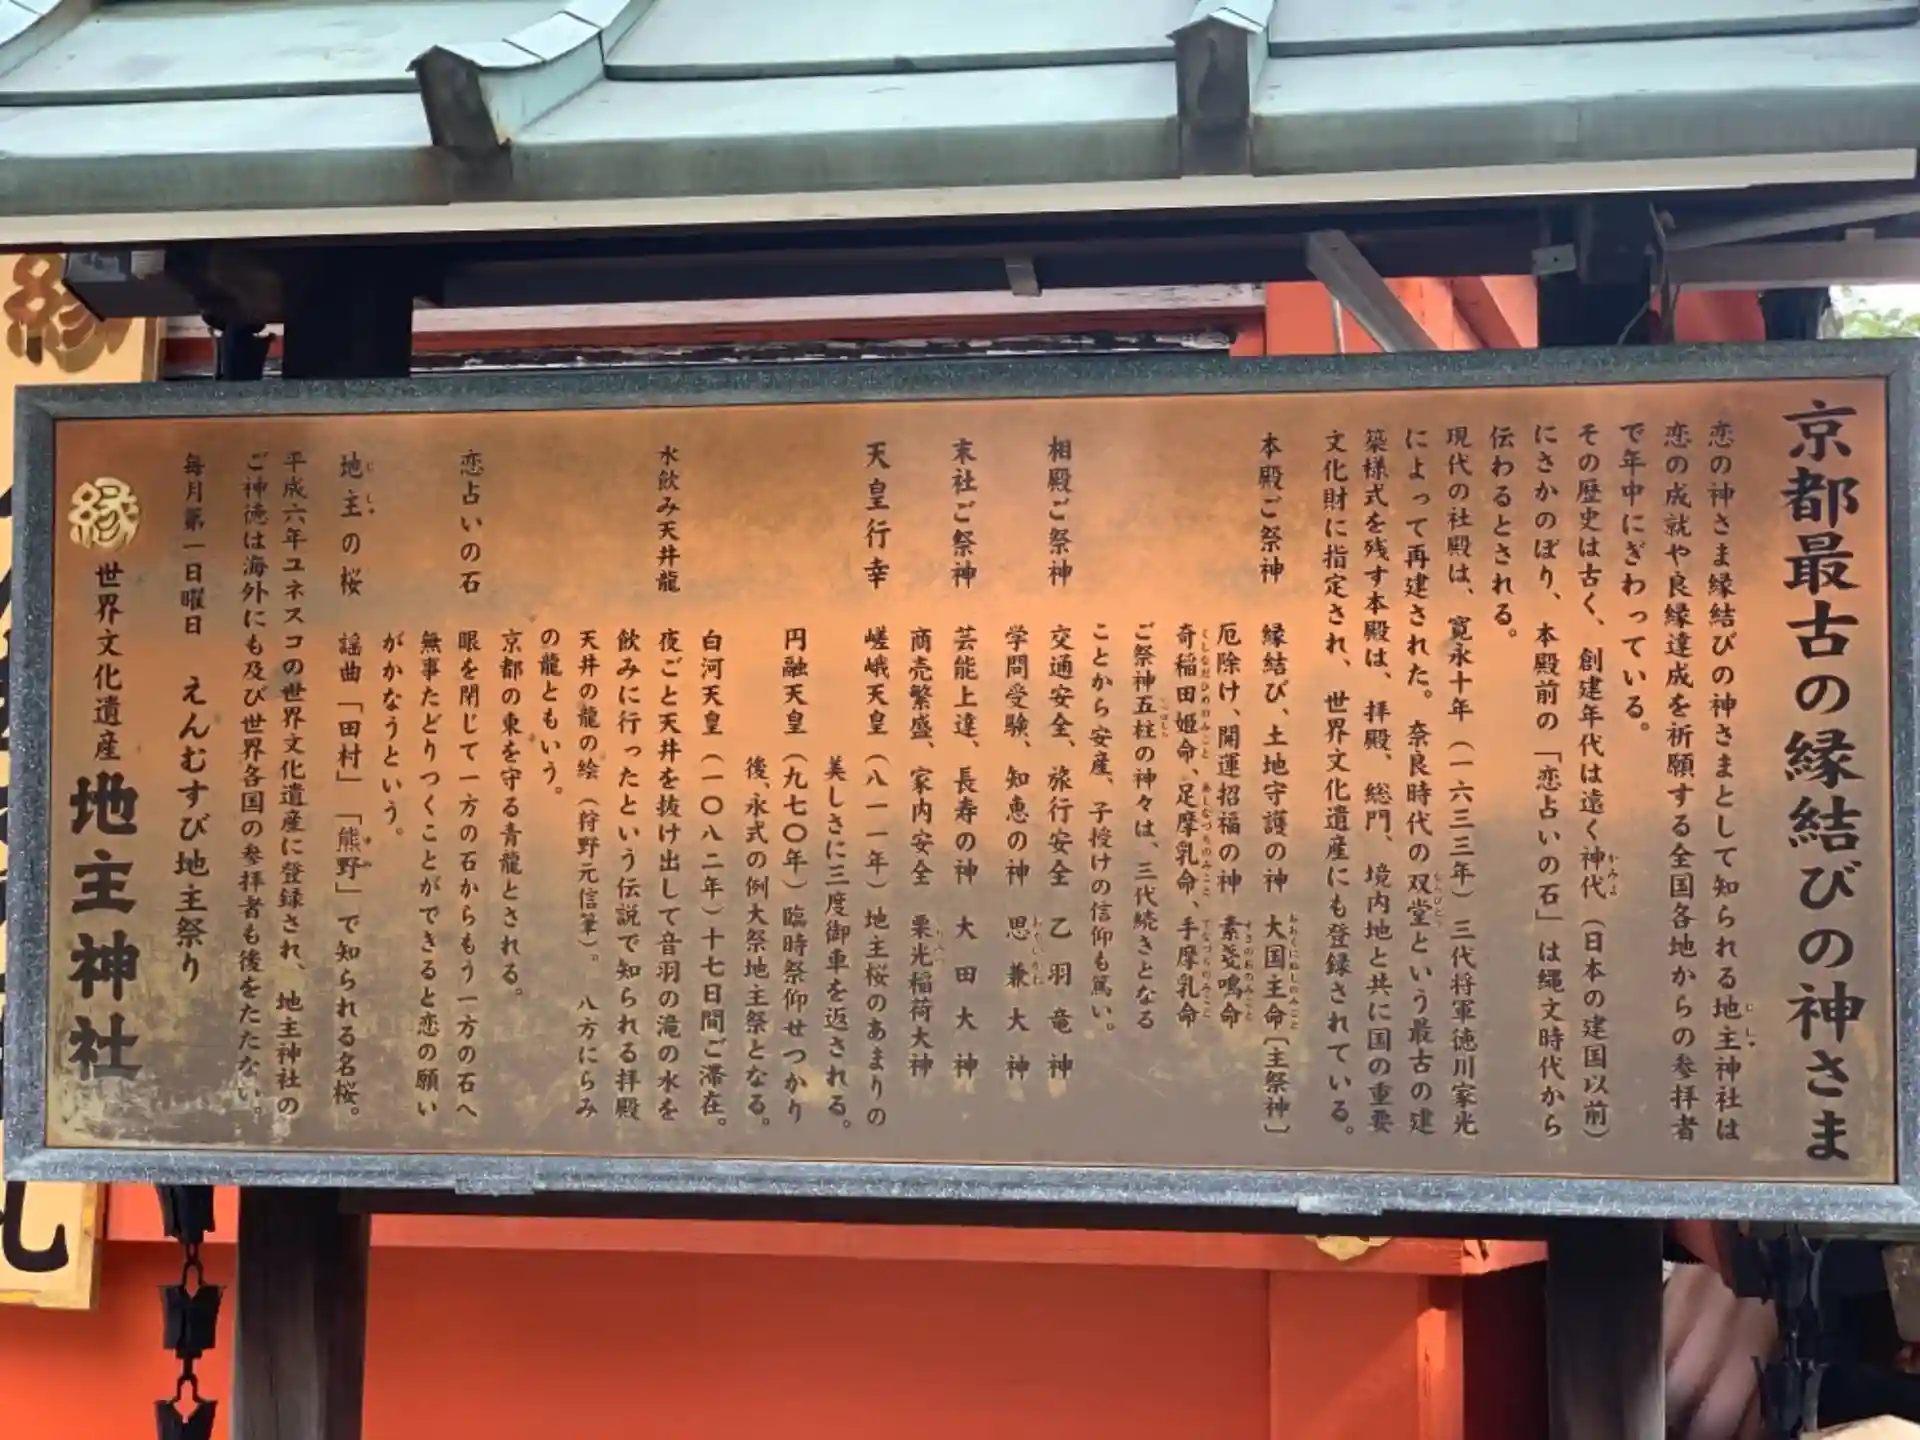 京都最古の縁結びの神さま
恋の神さま縁結びの神さまとして知られる地主神社は
恋の成就や良縁達成を祈願する全国各地からの参拝者
で年中にぎわっている。
その歴史は古く、創建年代は遠く神代（日本の建国以前）
にさかのぼり、本殿前の「恋占いの石」は縄文時代から
伝わるとされる。
現代の社殿は、寛永十年（一六三三年）三代将軍徳川家光
によって再建された。奈良時代の双堂という最古の建
築様式を残す本殿は、拝殿、総門、境内地と共に国の重要
文化財に指定され、世界文化遺産にも登録されている。
本殿ご祭神 縁結び、土地守護の神 大国主命〔主祭神〕
厄除け、開運招福の神 素戔嗚命
奇稲田姫命、足摩乳命、手摩乳命
ご祭神五柱の神々は、三代続きとなる
ことから安産、子授けの信仰も篤い。
相殿ご祭神 交通安全、旅行安全 乙羽竜神
学問受験、知恵の神 思兼大神
末社ご祭神 芸能上達、長寿の神 大田大神
商売繁盛、家内安全 栗光稲荷大神
天皇行幸 嵯峨天皇（八一一年）地主桜のあまりの
美しさに三度御車を返される。
円融天皇（九七〇年）臨時祭仰せつかり
後、永式の例大祭地主祭となる。
白河天皇（一〇八二年）十七日間ご滞在。
水飲み天井龍 夜ごと天井を抜け出して音羽の滝の水を
飲みに行ったという伝説で知られる拝殿
天井の龍の絵（狩野元信筆）。八方にらみ
の龍ともいう。
京都の東を守る青龍とされる。
恋占いの石 眼を閉じて一方の石からもう一方の石へ
無事たどりつくことができると恋の願い
がかなうという。
地主の桜 謡曲「田村」「熊野」で知られる名桜。
平成六年ユネスコの世界文化遺産に登録され、地主神社の
ご神徳は海外にも及び世界各国の参拝者も後をたたない。
毎月第一日曜日 えんむすび地主祭り
縁 世界文化遺産 地主神社
縁